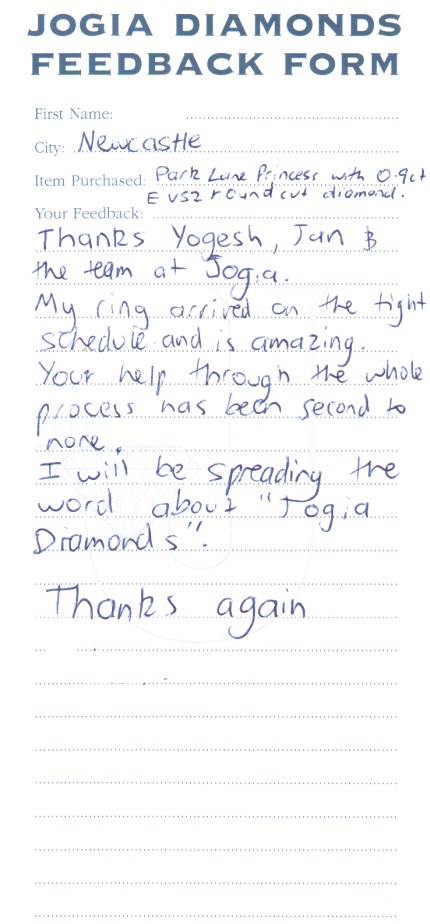 JOGIA DIAMONDS
FEEDBACK FORM
First Name:
City: Newcastle
Item Purchased: Park Lane Princess with 0.9ct
E VS2 round cut diamond.
Your Feedback:
Thanks Yogesh, Jan &
the team at Jogia.
My ring arrived on the tight
schedule and is amazing.
Your help through the whole
process has been second to
none.
I will be spreading the
word about "Jogia
Diamonds".
Thanks again